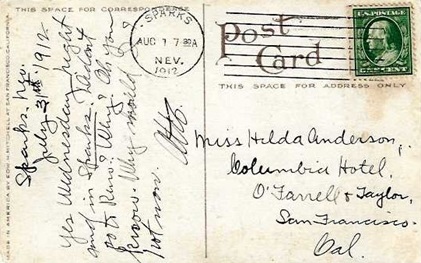 THIS SPACE FOR CORRESPONDENCE
Sparks. Nev.
July 31st. 1912.
Yes Wednesday night
and in Sparks. Didn't
go to Reno? Why? Oh you
know. Why would I?
not now.
Otto.
MADE IN AMERICA BY EDW. H. MITCHELL AT SAN FRANCISCO, CALIFORNIA
SPARKS
AUG 1 7-30A
NEV.
1912
Post
Card
THIS SPACE FOR ADDRESS ONLY
U.S. POSTAGE
Miss Hilda Anderson,
Columbia Hotel,
O'Farrell & Taylor,
San Francisco.
Cal.